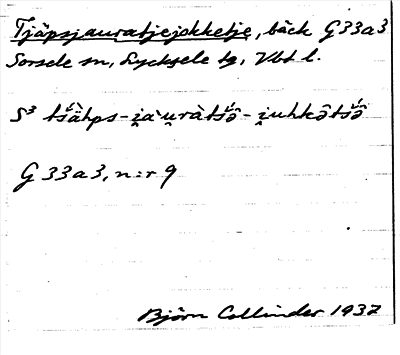 Tjäpsjauratjejokketje, bäck G33a3
Sorsele sn, Lycksele tg, Vbt l.
S³ tś́ä̀hps-i̯àu̯ràtś́ō̂-i̯uhkōtś́ō̂
G 33a3, n:r 9
Björn Collinder 1937